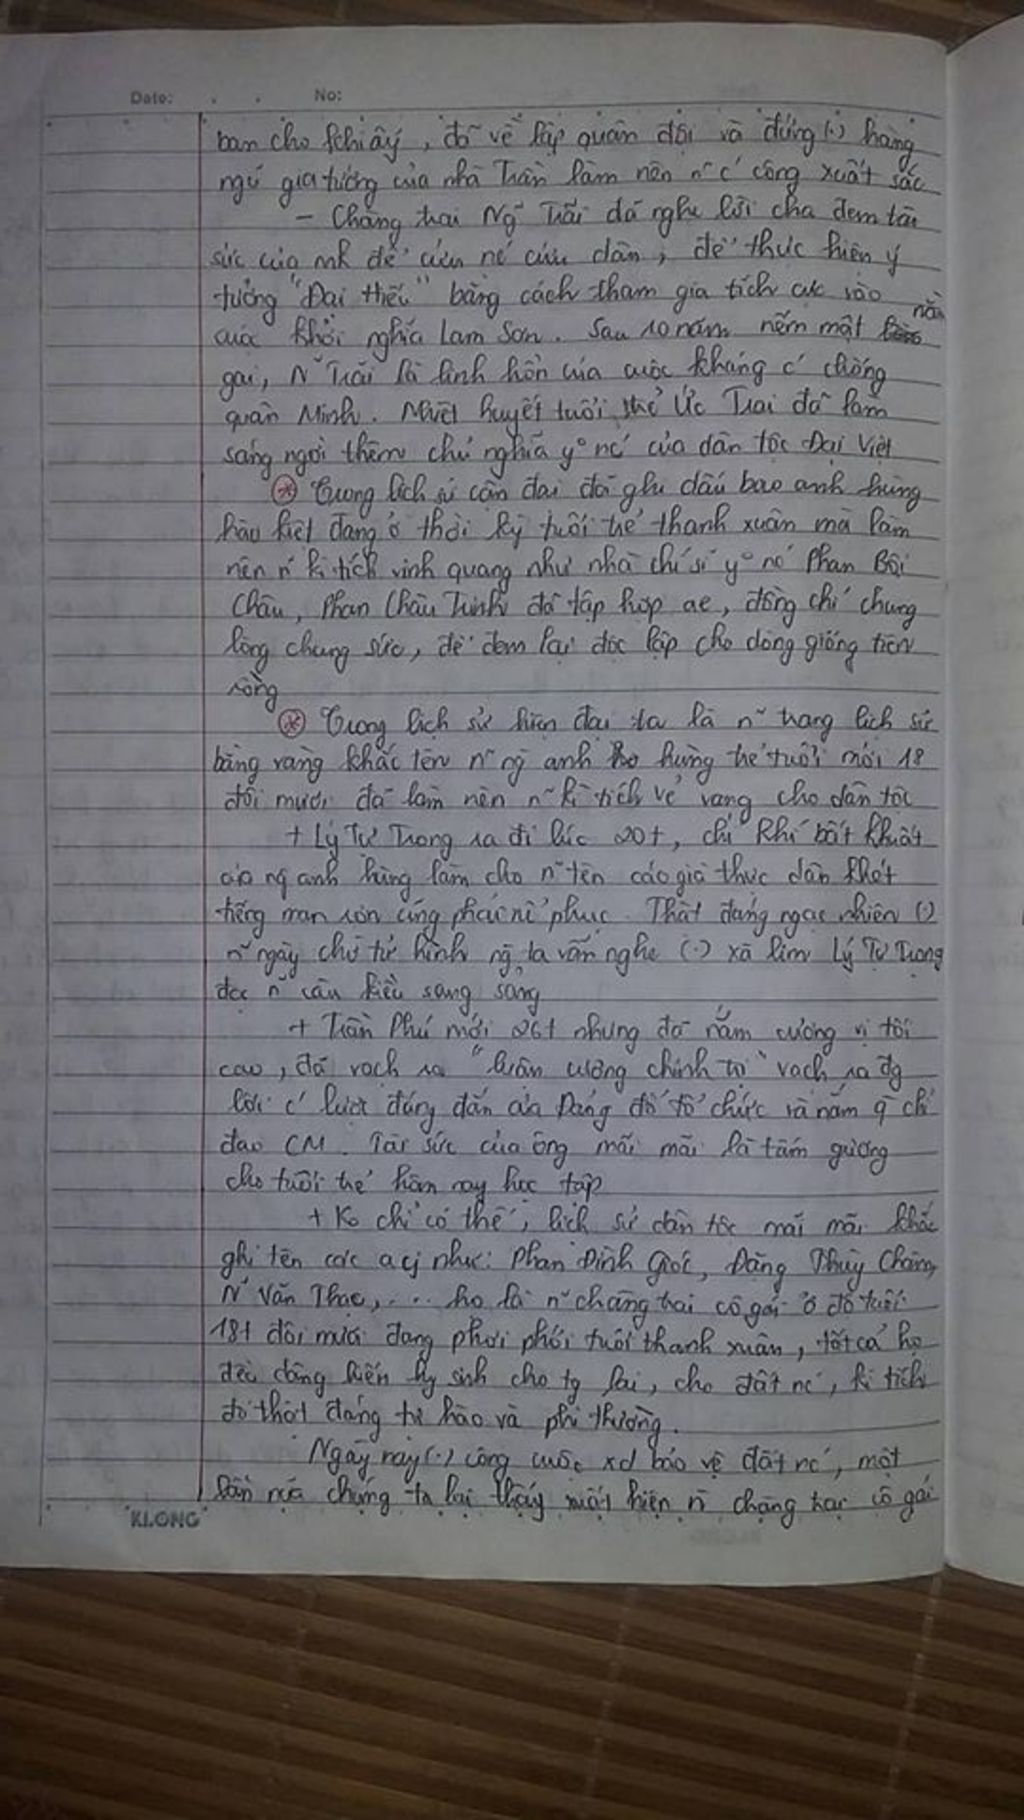 Date: . . No:
ban cho khi ấy, đã về lập quân đội và đứng (.) hàng
ngũ gia tướng của nhà Trần làm nên n~ c' công xuất sắc
- Chàng trai Ng~ Trãi đã nghe lời cha đem tài
sức của mh để cứu nc' cứu dân, để thực hiện ý
tưởng "Đại hiếu" bằng cách tham gia tích cực vào
cuộc khởi nghĩa Lam Sơn. Sau 10 năm nếm mật nằm
gai, N~ Trãi là linh hồn của cuộc kháng c' chống
quân Minh. Nhiệt huyết tuổi trẻ Ức Trai đã làm
sáng ngời thêm chủ nghĩa yº nc' của dân tộc Đại Việt
* Trong lịch sử cận đại đã ghi dấu bao anh hùng
hào kiệt đang ở thời kỳ tuổi trẻ thanh xuân mà làm
nên n~ kì tích vinh quang như nhà chí sĩ yº nc' Phan Bội
Châu, Phan Châu Trinh đã tập hợp ae, đồng chí chung
lòng chung sức, để đem lại độc lập cho dòng giống tiên
rồng
* Trong lịch sử hiện đại ta là n~ trang lịch sử
bằng vàng khắc tên n~ ng` anh hùng trẻ tuổi mới 18
đôi mươi đã làm nên n~ kì tích vẻ vang cho dân tộc
+ Lý Tự Trọng ra đi lúc 20t, chí khí bất khuất
của ng` anh hùng làm cho n~ tên cáo già thực dân khét
tiếng man rợn cũng phải nể phục. Thật đáng ngạc nhiên (.)
n~ ngày chờ tử hình ng` ta vẫn nghe (.) xà lim Lý Tự Trọng
đọc n~ câu Kiều sang sảng
+ Trần Phú mới 26t nhưng đã nắm cương vị tối
cao, đã vạch ra "luận cương chính trị" vạch ra đg
lối c' lược đúng đắn của Đảng đó tổ chức và nắm q` chỉ
đạo CM. Tài sức của ông mãi mãi là tấm gương
cho tuổi trẻ hôm nay học tập
+ Ko chỉ có thế, lịch sử dân tộc mãi mãi khắc
ghi tên các acj như: Phan Đình Giót, Đặng Thùy Châm,
N~ Văn Thạc,.... họ là n~ chàng trai cô gái ở độ tuổi
18t đôi mươi đang phơi phới tuổi thanh xuân, tất cả họ
đều cống hiến hy sinh cho tg lai, cho đất nc', kì tích
đó thật đáng tự hào và phi thường.
Ngày nay (.) công cuộc xd bảo vệ đất nc', một
lần nữa chúng ta lại thấy xuất hiện n~ chàng trai cô gái
KLONG